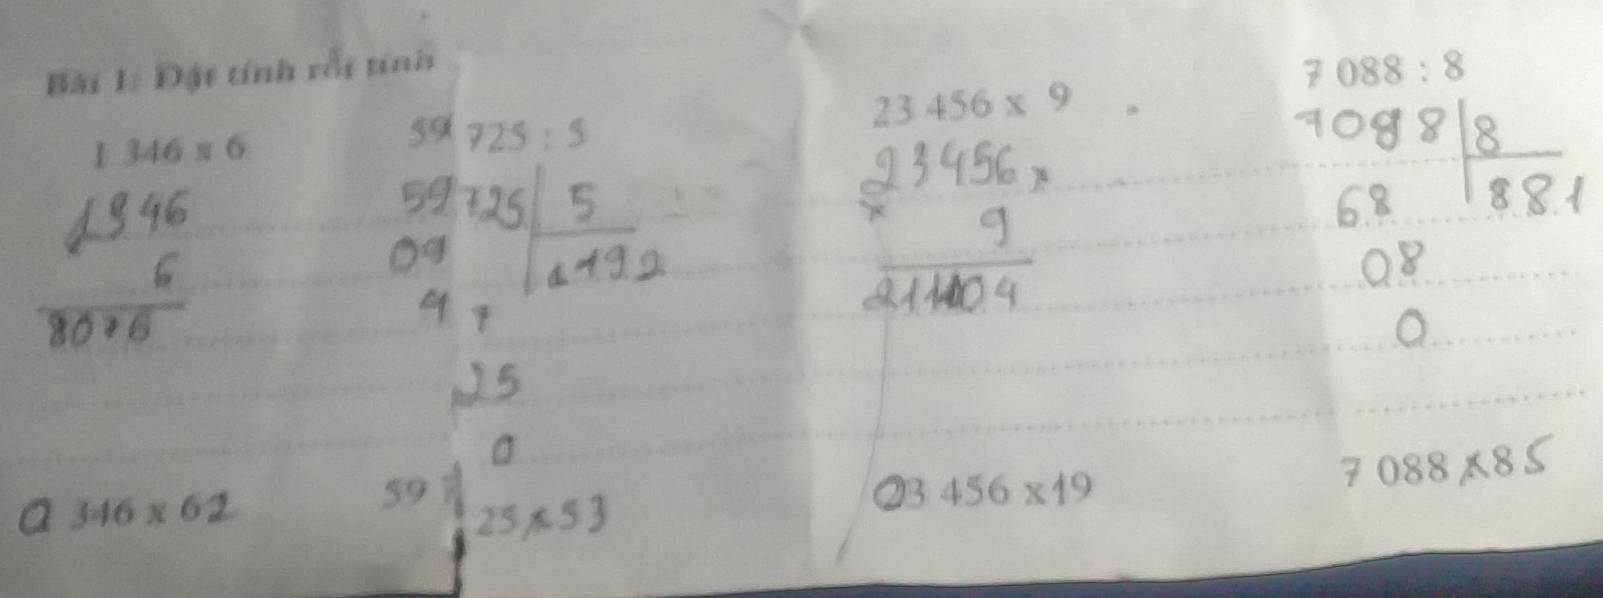 Bài 1: Đặt tính rồi tính
1 346 x 6
59 725 : 5
23 456 x 9
7 088 : 8
1346
6
8076
59725 5
09
47
25
0
23456 x
x
9
7088 8
68 881
08
0
346 x 62
59 725 x 53
23 456 x 19
7 088 x 85